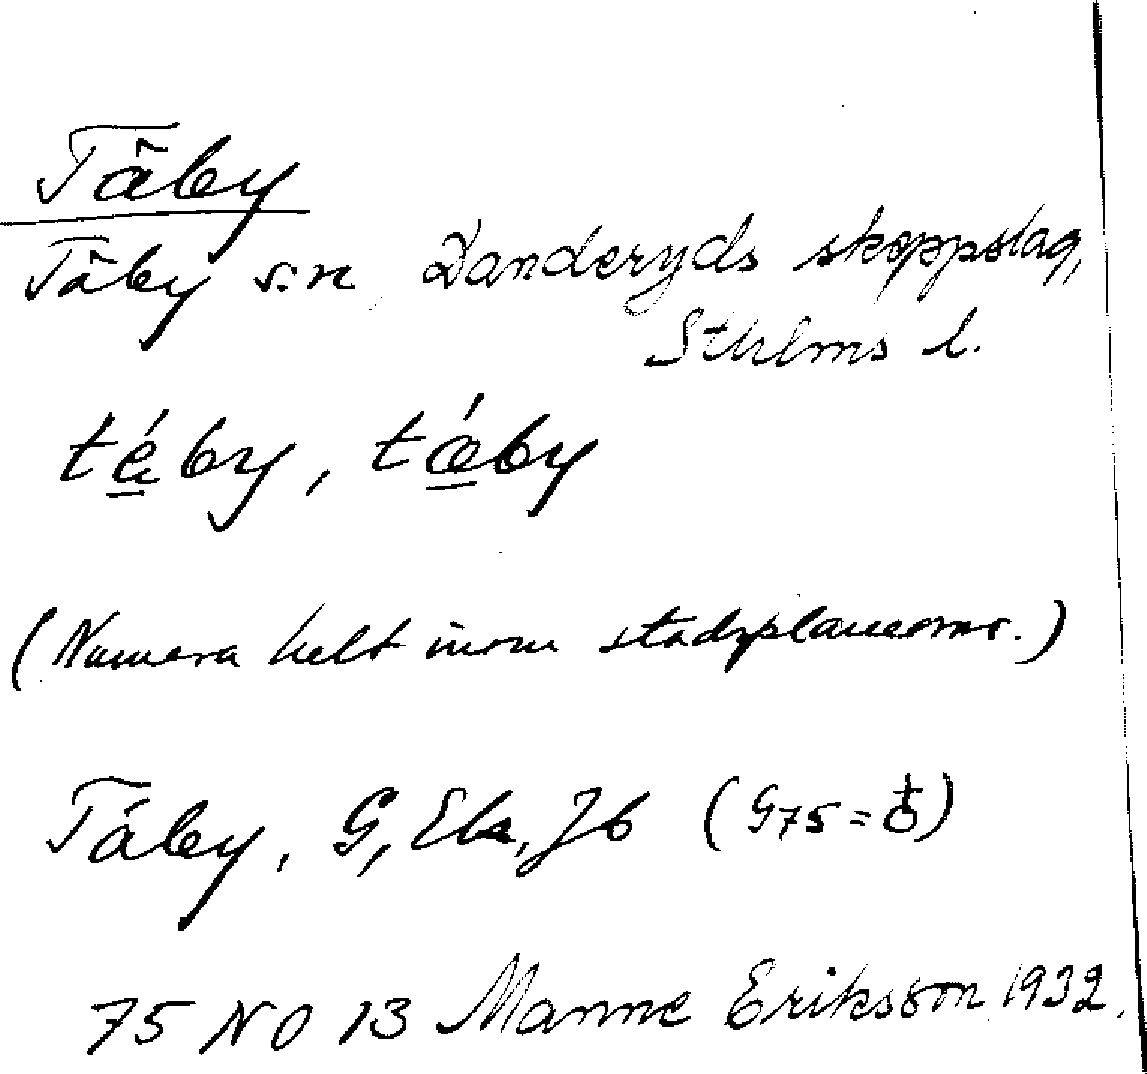 Täby
Täby s:n Danderyds skeppslag,
Sthlms l.
té̱by, tǽ̱by
(Numera helt inom stadsplaneomr.)
Täby, G, Ek, Jb (G75 = ♁)
75 NO 13 Manne Eriksson 1932.